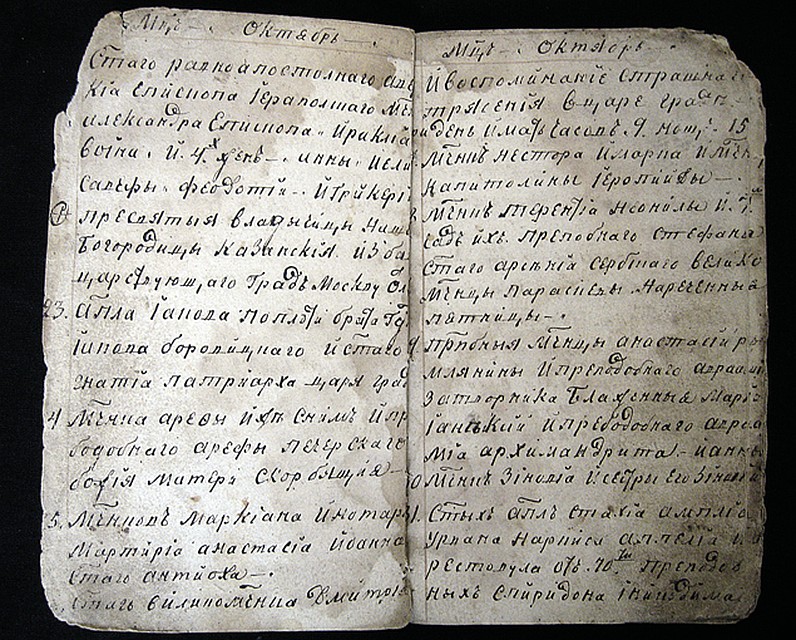 Мцъ Октябрь
Стаго равноапостолнаго аве
кія Епископа Іераполшаго Мч
Александра Епископа. Ираклїа
воина. И. 4х женъ. Анны. Исели
Савефы. Феодотїи. Игликерї
Пресвятыя владычицы Наш
Богородицы Казанскїя. Изба
царствующаго Градъ Москву
23. Апла Іакова поплоти брата Гд
Іакова боровицкаго и стаго
гнатїя патрїарха царя град
4 Мчнка арефы ихъ снимъ и пр
бодобнаго арефы печерскаго
божїя матери скорбящїя
5. Мчнковъ Маркїана и нотар
мартирїа анастасїа
Стаго антиоха
Стагъ великомчнка Дмитрї
Мцъ Октябрь
И воспоминанїе страшнаг
трясенїя в царе градѣ
день иматъ часовъ 9. нощъ. 15
Мчникъ Нестора и марка и мчн
капитолины
Мчникъ терентїа неонилы и. 7
чадъ ихъ. преподбнаго стефана
стаго арсенїа сербшаго велико
мчнцы параскевы. нареченныя
пятницы
прпбныя мчнцы анастасїи ри
млянины и преподобнаго аврами
затворника блаженныя марї
и преподобнаго авра
мїа архимандрита
Мчникъ зиновїа и сестры его зинов
31. Стыхъ аплъ стахїа амплїа
Урвана наркиса апеллїа и
рестовула отъ 70 ти преподоб
ныхъ спиридона и никодима